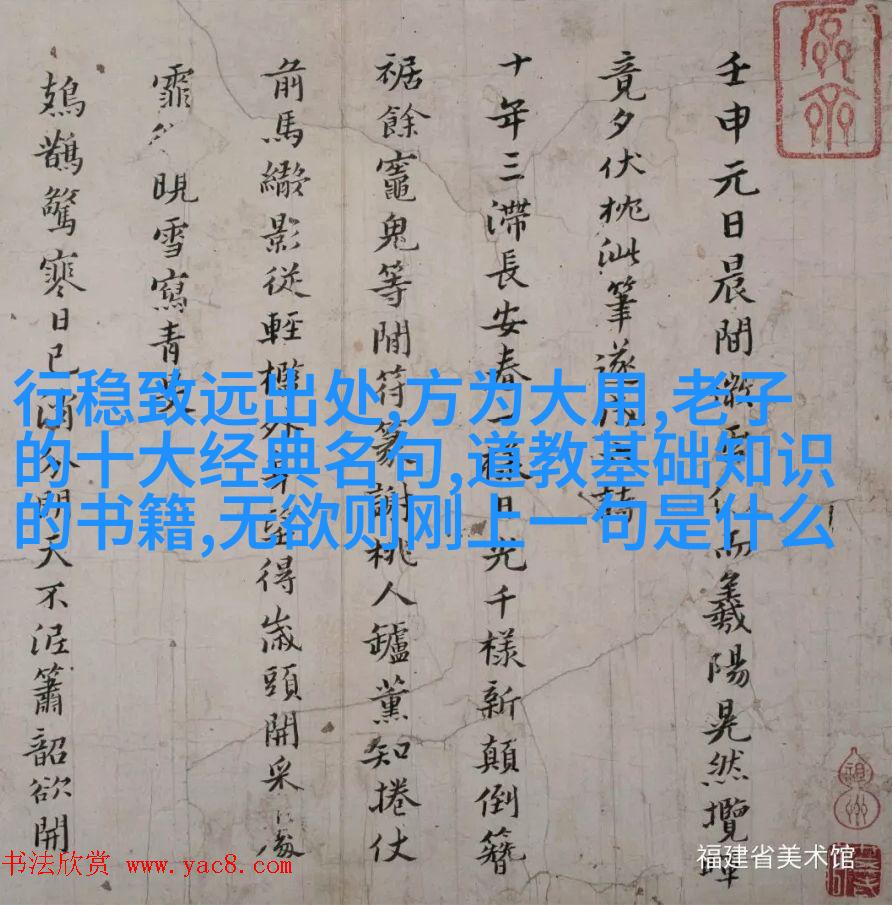 壬申元日晨間而羲陽晃然攬
竟夕伏枕泚筆遂
十年三滯長安春一樣日光千樣新顛倒簪
裾餘竈鬼等閒符篆謝桃人鑪薰知捲仗
前馬影從輕望得歲頭開采
霏晛雪寫青
鵲驚寒日已天不泥簫韶欲開
行稳致远出处,方为大用,老子
的十大经典名句,道教基础知识
的书籍,无欲则刚上一句是什么
书法欣赏 www.yac8.com
福建省美术馆